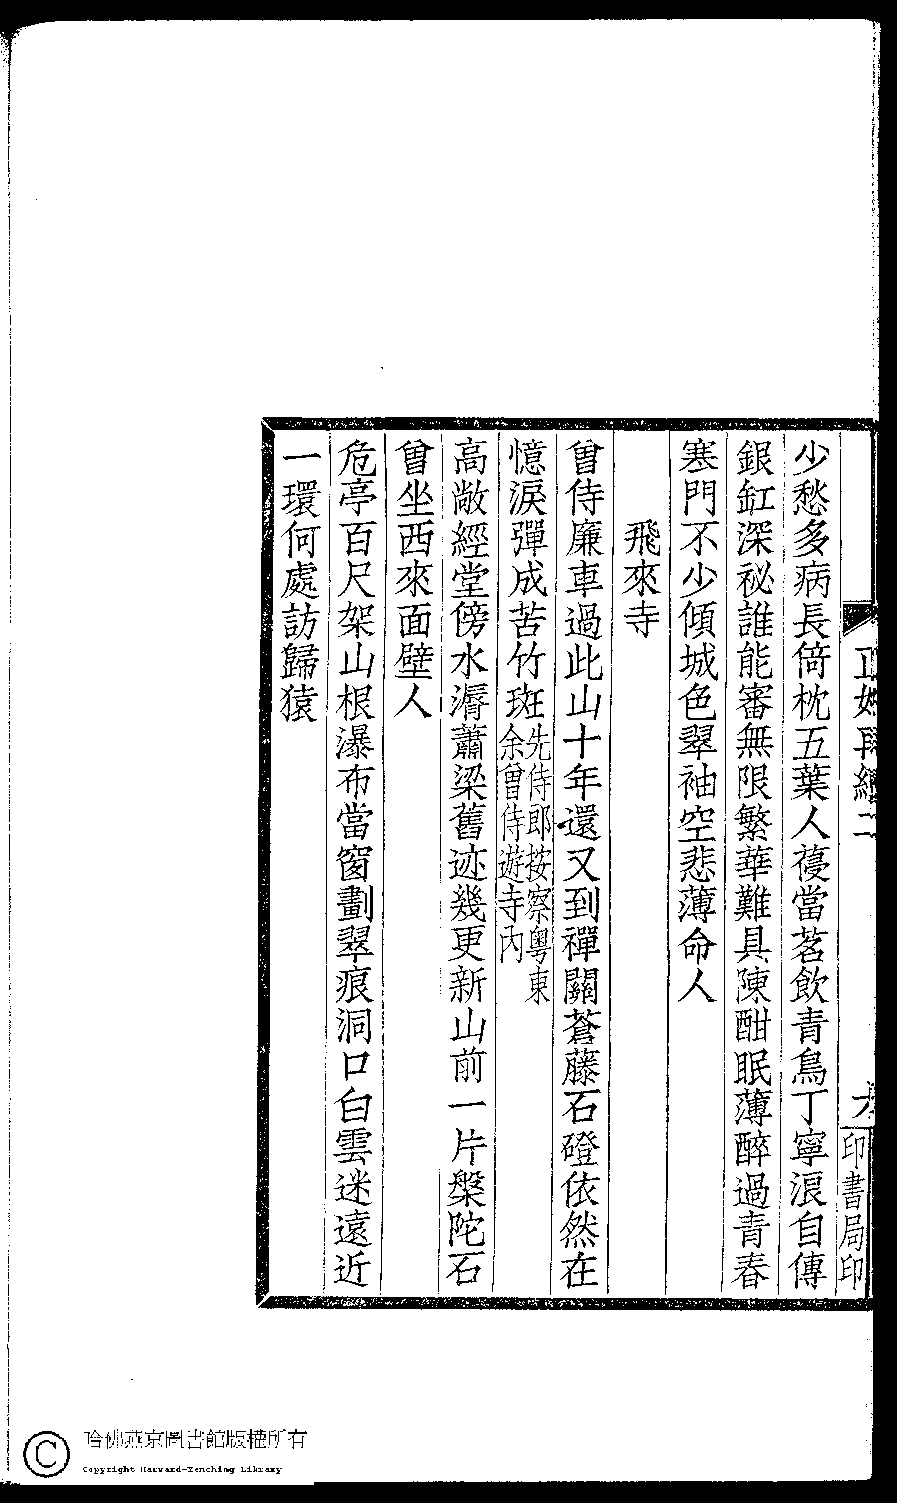 少愁多病長倚枕五葉人蓡當茗飲青鳥丁寧浪自傳
銀缸深祕誰能審無限繁華難具陳酣眠薄醉過青春
塞門不少傾城色翠袖空悲薄命人
飛來寺
曾侍廉車過此山十年還又到禪關蒼藤石磴依然在
憶淚彈成苦竹斑先侍郎按察粵東余曾侍遊寺內
高敞經堂傍水漘蕭梁舊迹幾更新山前一片槃陀石
曾坐西來面壁人
危亭百尺架山根瀑布當窗劃翠痕洞口白雲迷遠近
一環何處訪歸猿
印書局印
哈佛燕京圖書館版權所有
Copyright Harvard-Yenching Library